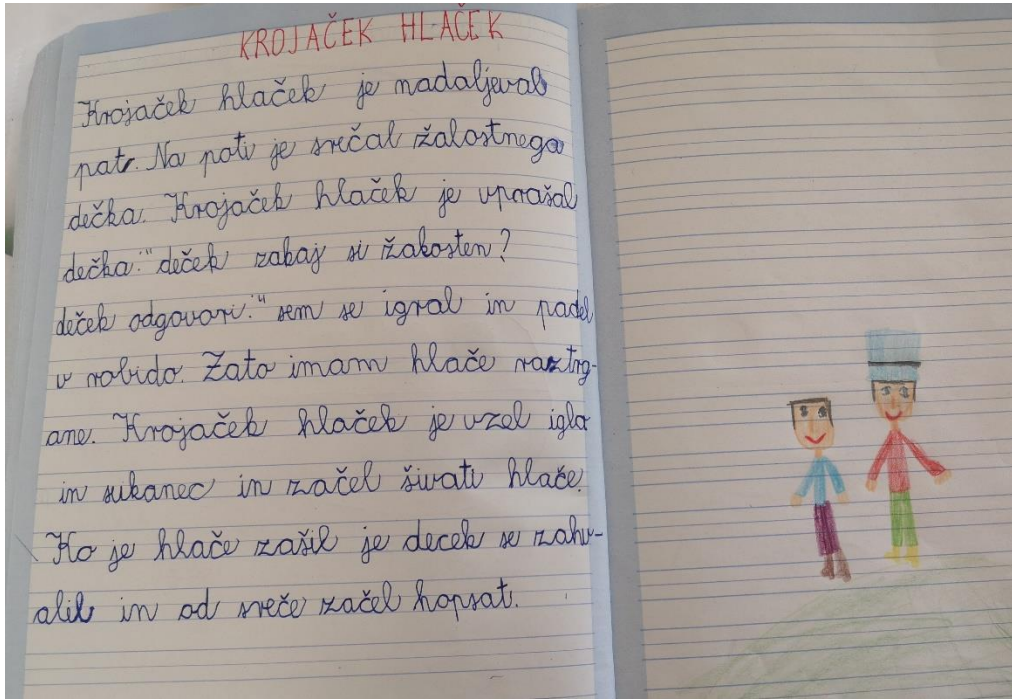 KROJAČEK HLAČEK
Krojaček hlaček je nadaljeval
pot. Na poti je srečal žalostnega
dečka. Krojaček hlaček je uprašal
dečka:"deček zakaj si žakosten?
deček odgovori:"sem se igral in padel
v robido. Zato imam hlače raztrg-
ane. Krojaček hlaček je vzel iglo
in sukanec in začel šivati hlače.
Ko je hlače zašil je decek se zahv-
alil in od sreče začel hopsat.